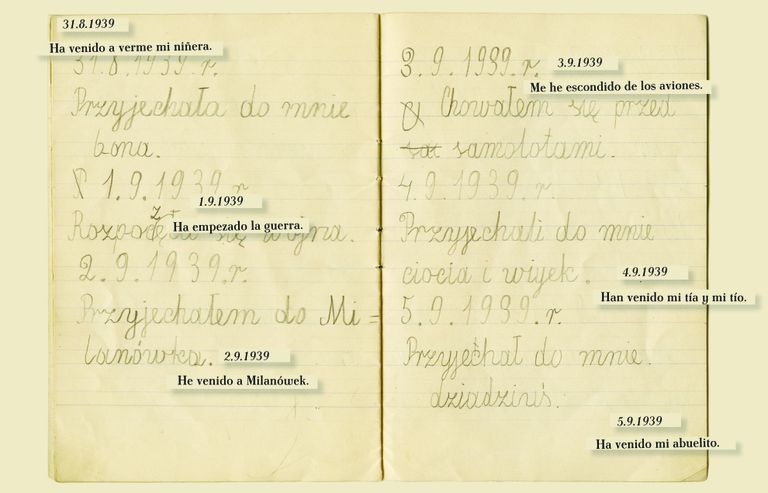 31.8.1939
Ha venido a verme mi niñera.
31.8.1939.r.
Przyjechała do mnie
bona.
1.9.1939 r.
1.9.1939
Ha empezado la guerra.
Rozpoczęła się wojna.
2.9.1939.r.
Przyjechałem do Mi=
lanówka.
2.9.1939
He venido a Milanówek.
3.9.1939.r.
3.9.1939
Me he escondido de los aviones.
Chowałem się przed
samolotami.
4.9.1939.r.
Przyjechali do mnie
ciocia i wujek.
4.9.1939
Han venido mi tía y mi tío.
5.9.1939.r.
Przyjechał do mnie.
dziadziuś.
5.9.1939
Ha venido mi abuelito.